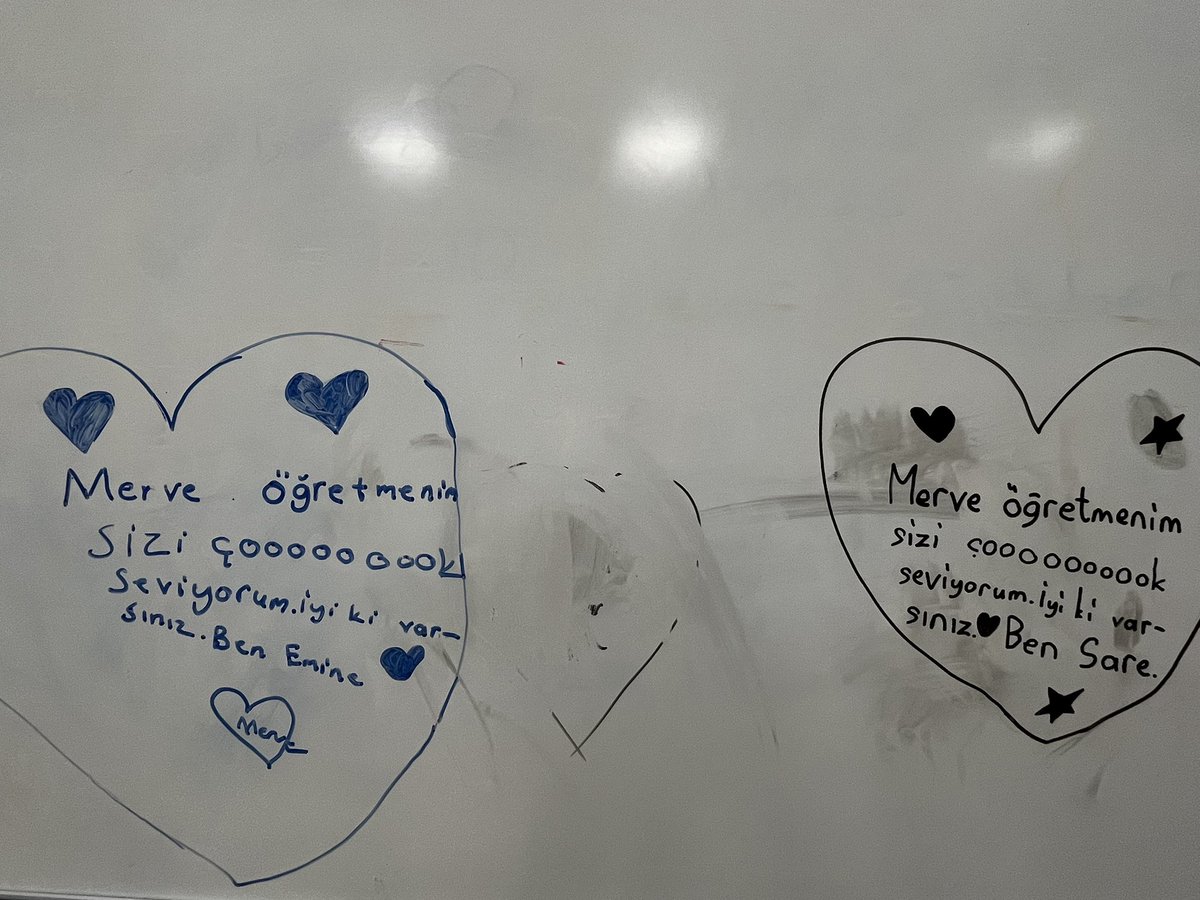 Merve öğretmenim
sizi çoooooooook
seviyorum.iyi ki var-
sınız. Ben Emine
Merve
Merve öğretmenim
sizi çooooooooook
seviyorum.iyi ki var-
sınız. Ben Sare.